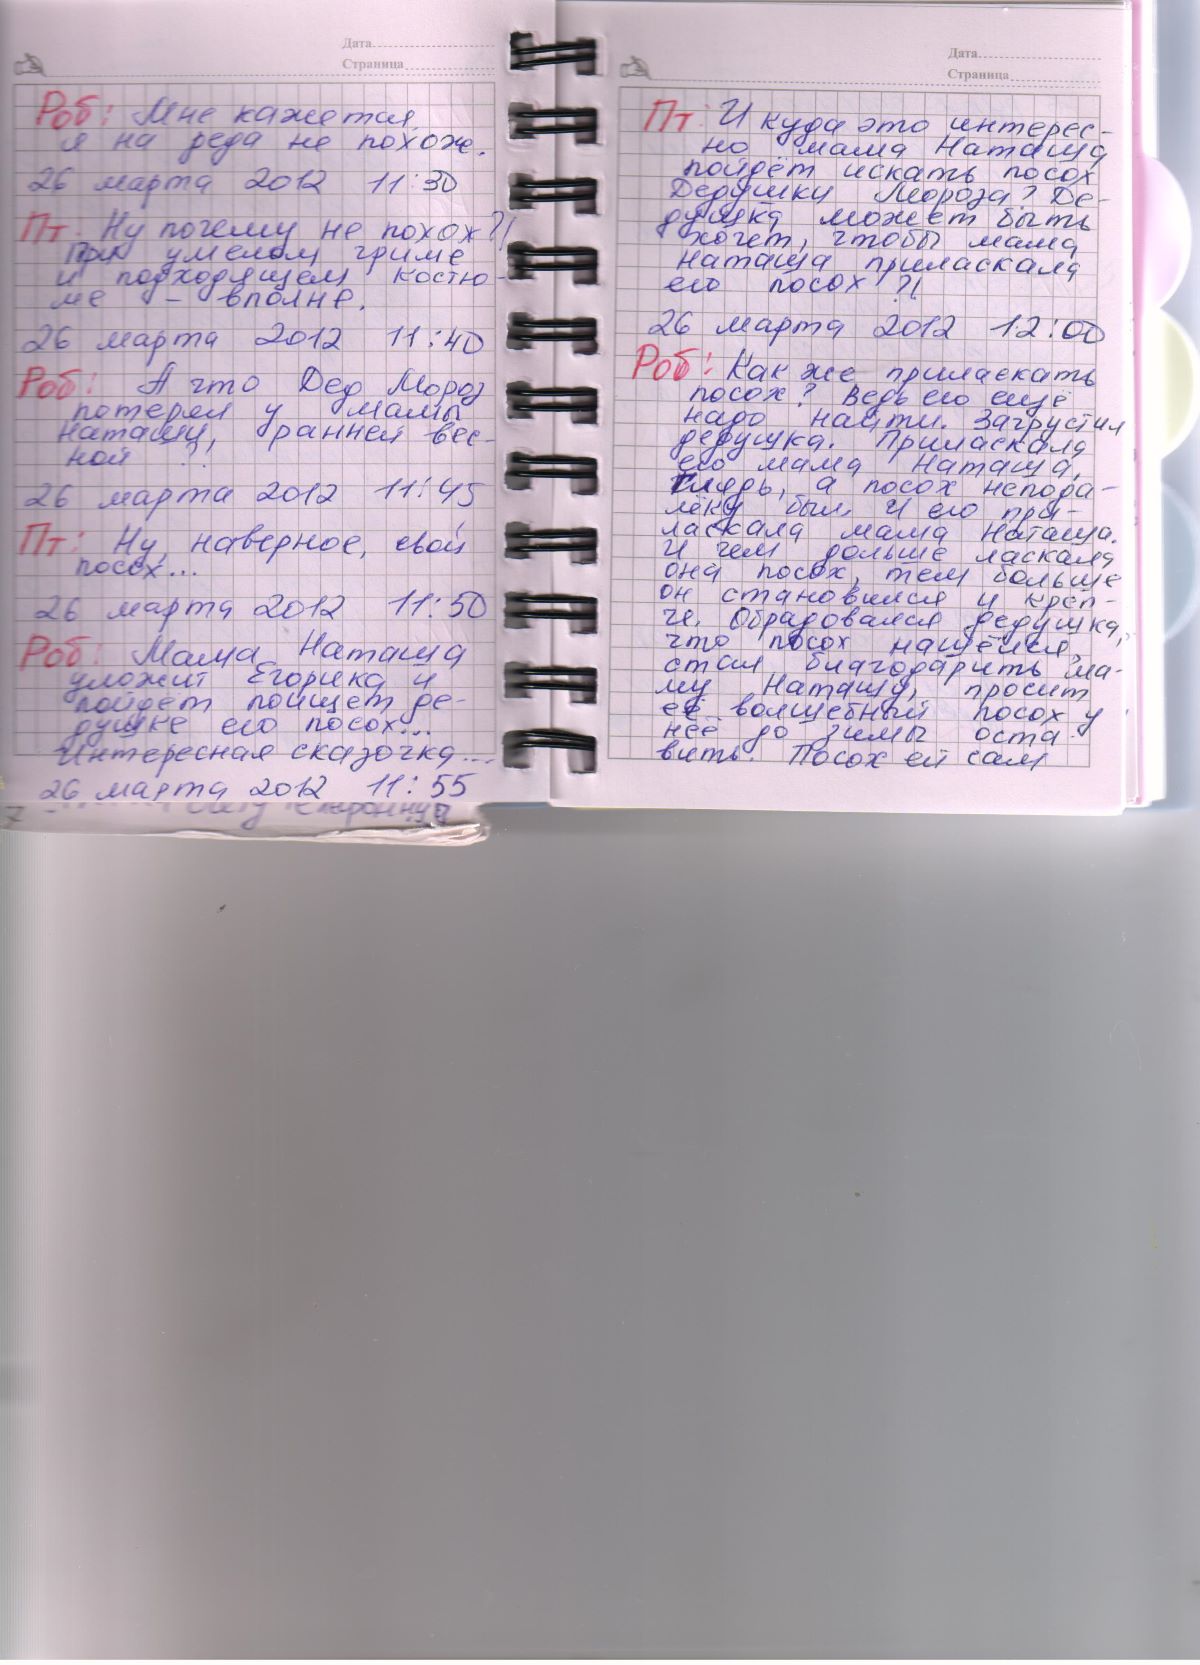 Дата
Страница
Роб: Мне кажется,
я на деда не похож.
26 марта 2012 11:30
Пт: Ну почему не похож?!
При умелом гриме
и подходящем костю-
ме – вполне.
26 марта 2012 11:40
Роб: А что Дед Мороз
потерял у мамы
Наташи, ранней вес-
ной ?..
26 марта 2012 11:45
Пт: Ну, наверное, свой
посох...
26 марта 2012 11:50
Роб: Мама Наташа
уложит Егорика и
пойдёт поищет де-
душке его посох...
Интересная сказочка...
26 марта 2012 11:55
Дата
Страница
Пт: И куда это интерес-
но мама Наташа
пойдёт искать посох
Дедушки Мороза? Де-
душка может быть
хочет, чтобы мама
Наташа приласкала
его посох ?!
26 марта 2012 12:00
Роб: Как же приласкать
посох? Ведь его ещё
надо найти. Загрустил
дедушка. Приласкала
его мама Наташа,
глядь, а посох непода-
лёку был. И его при-
ласкала мама Наташа.
И чем дольше ласкала
она посох, тем больше
он становился и креп-
че. Обрадовался дедушка,
что посох нашёлся,
стал благодарить ма-
му Наташу, просит
её волшебный посох у
неё до зимы оста-
вить. Посох ей сам